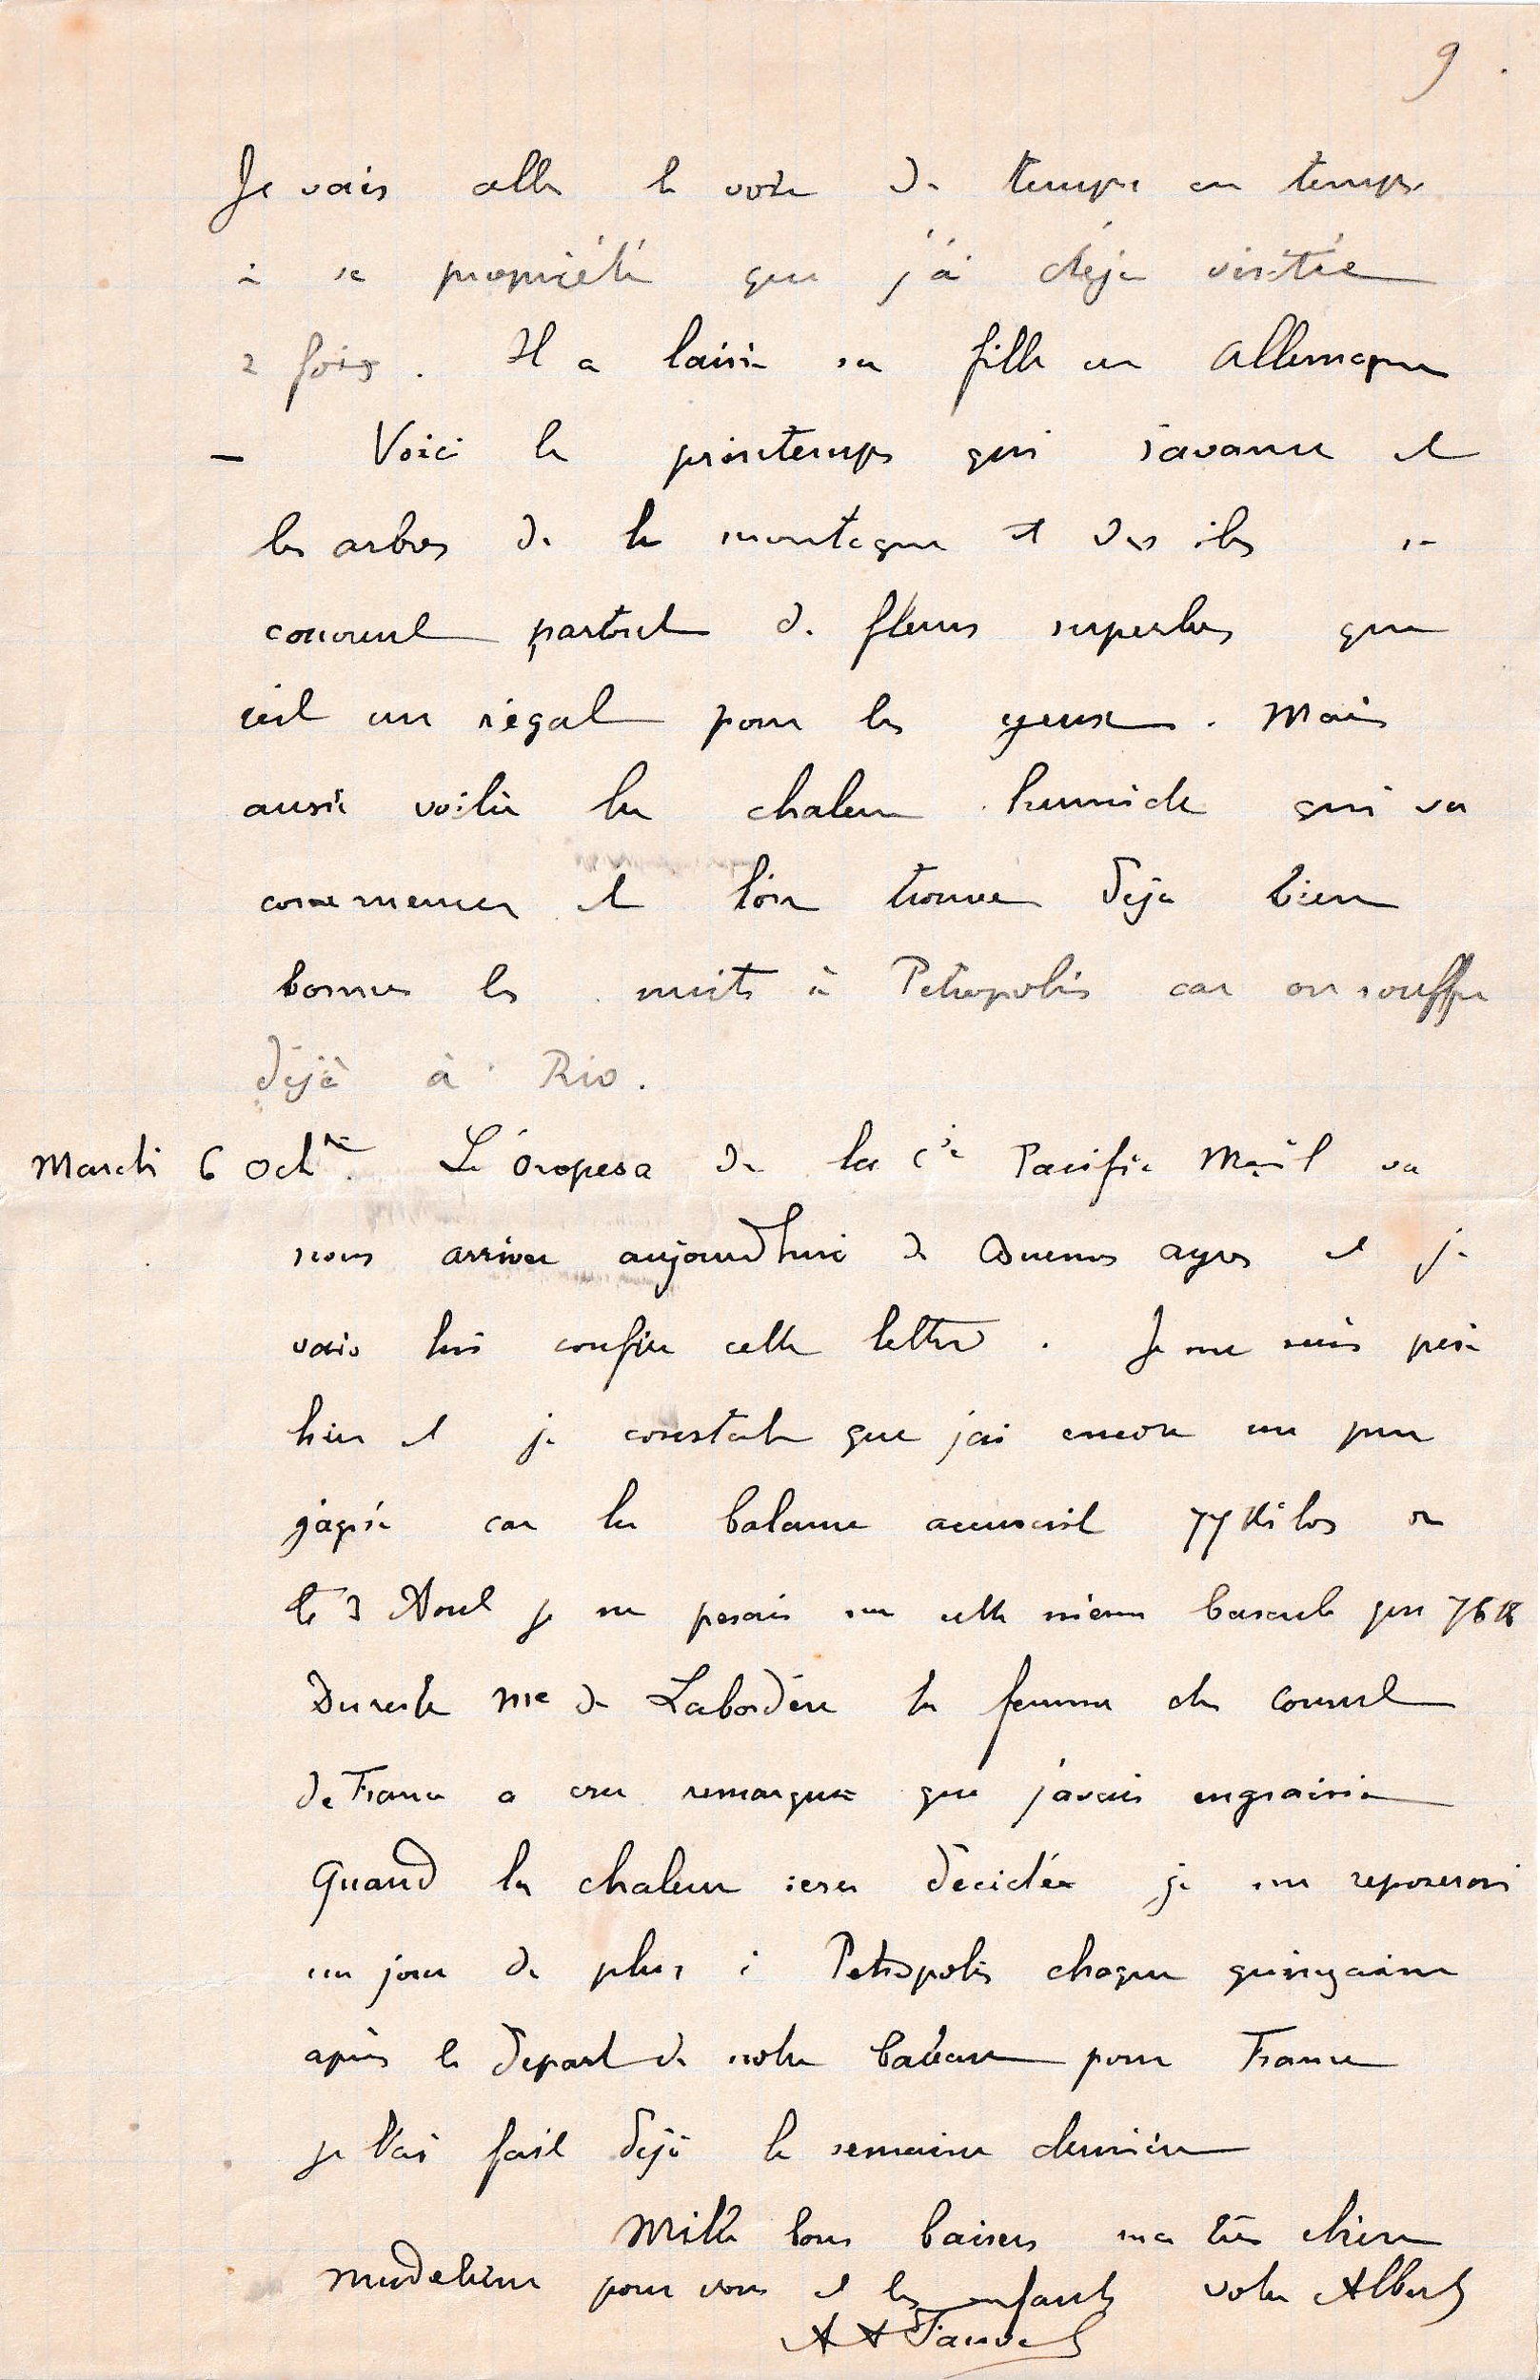 9.
Je vais aller le voir de temps en temps
à sa propriété que j'ai déjà visitée
2 fois. Il a laissé sa fille en Allemagne
— Voici le printemps qui s'avance et
les arbres de la montagne et des iles se
couvrent partout de fleurs superbes que
c'est un régal pour les yeux. Mais
aussi voilà la chaleur humide qui va
commencer et l'on trouve déjà bien
bonnes les nuits à Petropolis car on souffre
déjà à Rio.
Mardi 6 Octbre. L'Oropesa de la Cie Pacific Mail va
nous arriver aujourd'hui de Buenos ayres et je
vais lui confier cette lettre. Je me suis pesé
hier et je constate que j'ai encore un peu
gagné car la balance accusait 77 Kilos or
le 3 Aout je ne pesais sur cette même bascule que 76 K
Du reste Me de Labordère la femme du consul
de France a cru remarquer que j'avais engraissé
Quand la chaleur sera décidée je me reposerai
un jour de plus à Petropolis chaque quinzaine
après le départ de notre bateau pour France
je l'ai fait déjà la semaine dernière
Mille bons baisers ma très chère
Madeleine pour vous et les enfants votre Albert
A A Fauvel